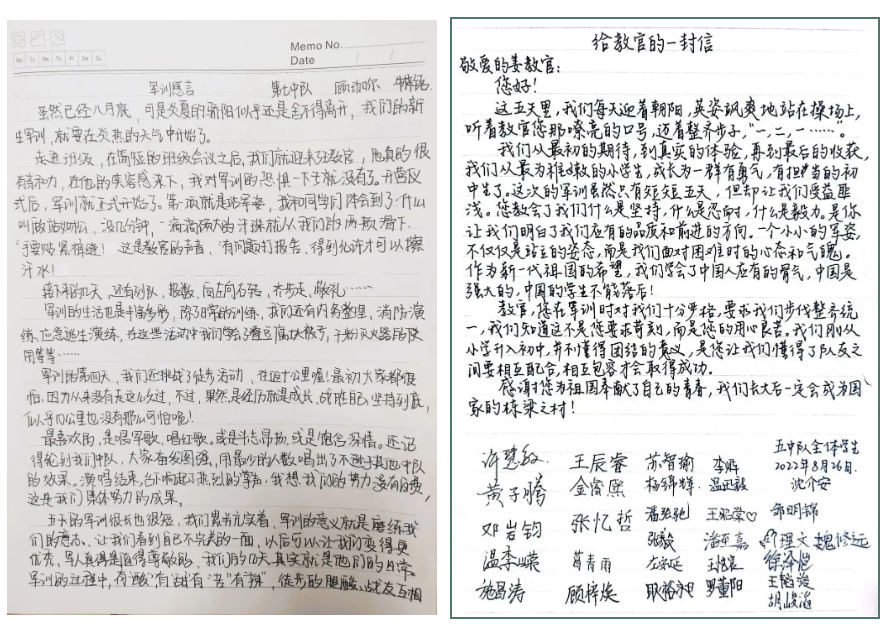 Memo No.
Date
Mo Tu We Th Fr Sa Su
军训感言 第七中队
虽然已经八月底，可是炎夏的骄阳似乎还是舍不得离开，我们的新
生军训，就要在炎热的天气中开始了。
走进班级，在简短的班级会议之后，我们就迎来了教官，他真的很
有亲和力，在他的笑容感染下，我对军训的恐惧一下子就没有了。开营仪
式后，军训就正式开始了。第一项就是站军姿，我和同学们体会到了什么
叫做站如松，没几分钟，一滴滴硕大的汗珠就从我们的两颊滑下，
“手要贴紧裤缝！”这是教官的声音，“有问题打报告，得到允许才可以擦
汗水！
接下来的几天，还有列队，报数，向左向右转，齐步走，敬礼……
军训的生活也是丰富多彩，除了日常的训练，我们还有内务整理，消防演
练，应急逃生演练，在这些活动中我们学会了叠豆腐块被子，干粉灭火器的使
用等等……
军训的第四天，我们还挑战了徒步活动，在近十公里喔！最初大家都很
怕，因为从来没有走这么久过，不过，果然是经历就是成长，战胜自己，坚持到底，
似乎10公里也没有那么可怕啦！
最喜欢的，是唱军歌，唱红歌，或是斗志昂扬，或是饱含深情。还记
得轮到我们中队，大家奋发图强，用最少的人数唱出了不逊于其他中队
的效果。演唱结束，台下响起了热烈的掌声，我想，我们的努力没有白费，
这是我们集体努力的成果。
五天的军训很长也很短，我们累并充实着，军训的意义就是磨练我
们的意志，让我们看到自己不完美的一面，以后可以让我们变得更
优秀，军人真得是值得尊敬的，我们的几天其实就是他们的日常。
军训的过程中，有“酸”有“甜”有“苦”有“辣”，徒步的腿酸，战友互相
给教官的一封信
敬爱的姜教官：
您好！
这五天里，我们每天迎着朝阳，英姿飒爽地站在操场上，
听着教官您那嘹亮的口号，迈着整齐步子，“一，二，一……。
我们从最初的期待，到真实的体验，再到最后的收获，
我们从最为稚嫩的小学生，成长为一群有勇气，有担当的初
中生了。这次的军训虽然只有短短五天，但却让我们受益匪
浅。您教会了我们什么是坚持，什么是忍耐，什么是毅力。是你
让我们明白了我们应有的品质和前进的方向。一个小小的军姿，
不仅仅是站立的姿态，而是我们面对困难时的心态和气魄。
作为新一代祖国的希望，我们学会了中国人应有的骨气，中国是
强大的，中国的学生不能落后！
教官，您在军训时对我们十分严格，要求我们步伐整齐统
一，我们知道这不是您要求苛刻，而是您的用心良苦。我们刚从
小学升入初中，并不懂得团结的意义，是您让我们懂得了队友之
间要相互配合，相互包容才会取得成功。
感谢您为祖国奉献了自己的青春，我们长大后一定会成为国
家的栋梁之材！
五中队全体学生
2022年8月26日.
许慧敏 王辰睿 苏智瑜 沈介安
黄子腾 金睿熙 温正毅
邓岩钧 张忆哲 邹明锦
魏修远
温李嵘 葛青雨
施昌涛 顾梓焕 耿裕昶 罗董阳